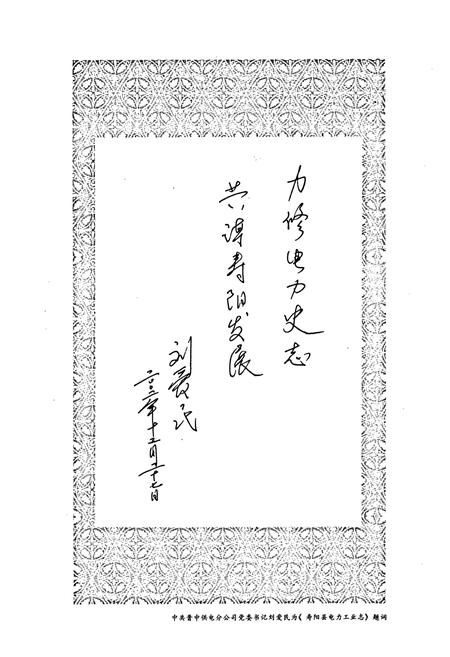 力修电力史志
共谱寿阳发展
刘爱民
二00二年十二月二十七日
中共晋中供电分公司党委书记刘爱民为《寿阳县电力工业志》题词